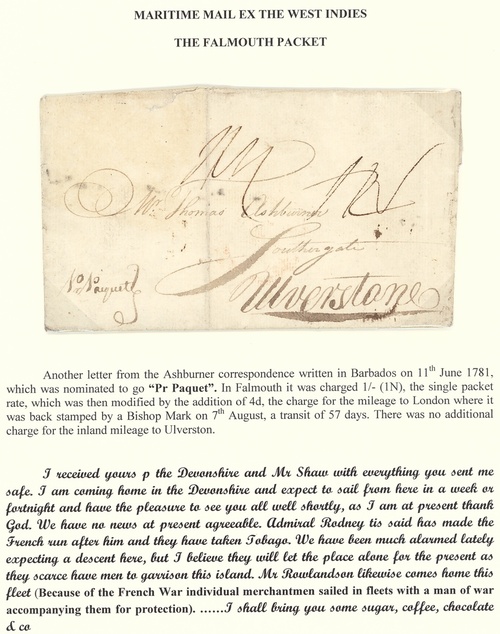 MARITIME MAIL EX THE WEST INDIES
THE FALMOUTH PACKET
1N
Mr. Thomas Ashburner
Southergate
Ulverstone
Pr Paquet
Another letter from the Ashburner correspondence written in Barbados on 11th June 1781,
which was nominated to go “Pr Paquet”. In Falmouth it was charged 1/- (1N), the single packet
rate, which was then modified by the addition of 4d, the charge for the mileage to London where it
was back stamped by a Bishop Mark on 7th August, a transit of 57 days. There was no additional
charge for the inland mileage to Ulverston.
I received yours p the Devonshire and Mr Shaw with everything you sent me
safe. I am coming home in the Devonshire and expect to sail from here in a week or
fortnight and have the pleasure to see you all well shortly, as I am at present thank
God. We have no news at present agreeable. Admiral Rodney tis said has made the
French run after him and they have taken Tobago. We have been much alarmed lately
expecting a descent here, but I believe they will let the place alone for the present as
they scarce have men to garrison this island. Mr Rowlandson likewise comes home this
fleet (Because of the French War individual merchantmen sailed in fleets with a man of war
accompanying them for protection). ......I shall bring you some sugar, coffee, chocolate
& co